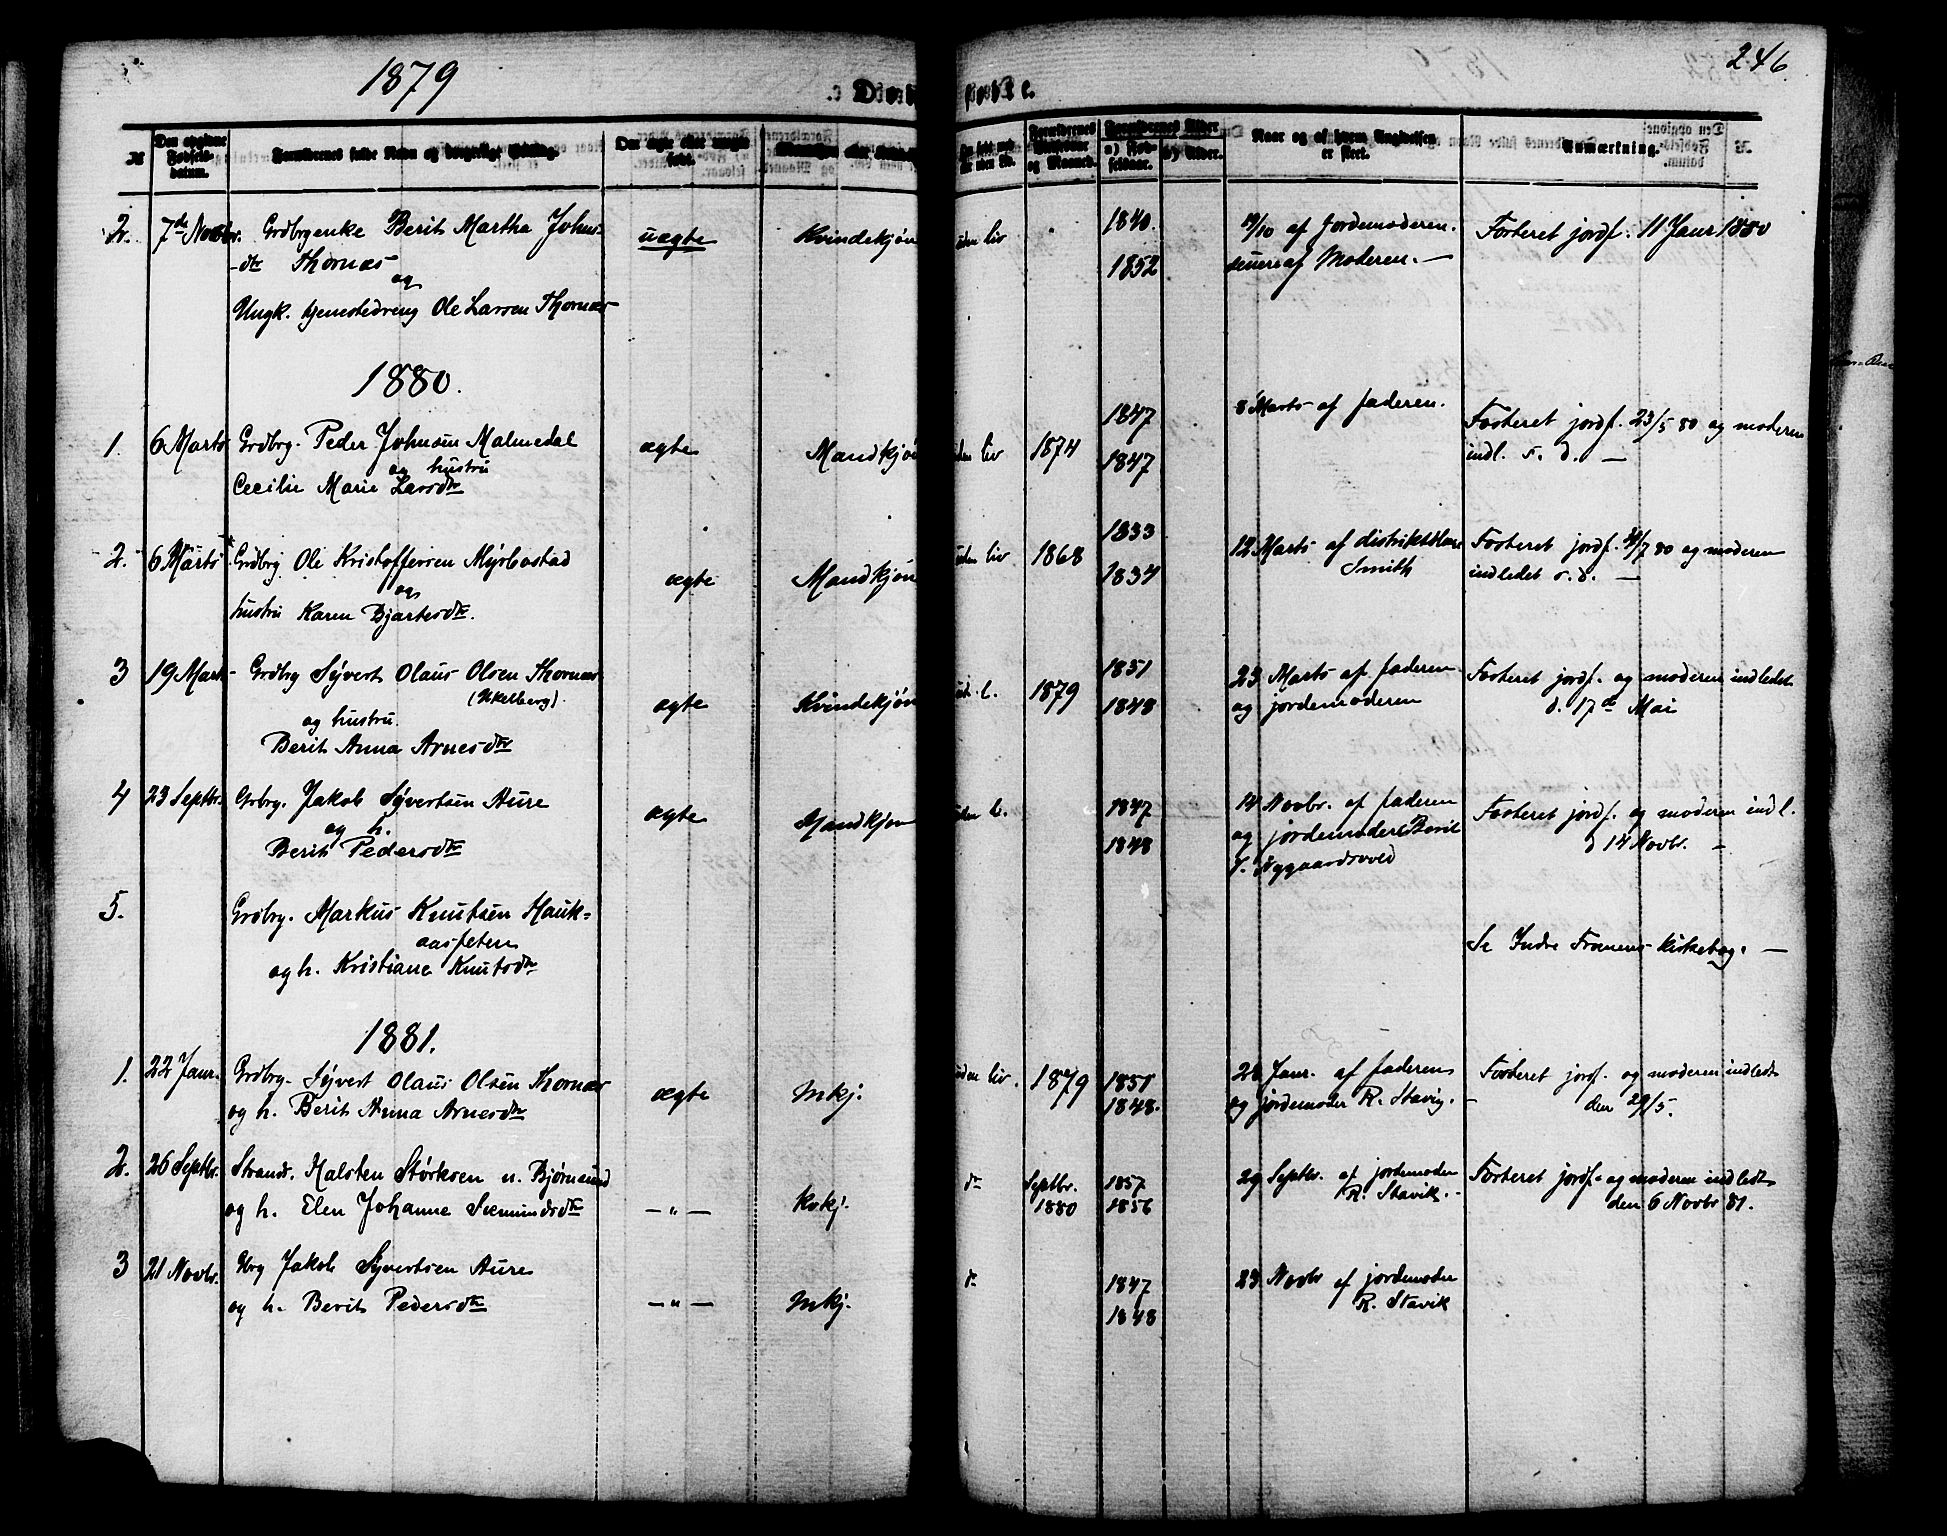 1879
246.
Dødfødte.
№
Den opgivne Fødselsdatum.
Forældrenes fulde Navn og borgerlige Stilling.
Om ægte eller uægte født.
Mandkjøn eller Kvindekjøn
Forældrenes Vielsesaar og Maaned.
Forældrenes Alder
a) Fødselsaar.
b) Alder.
Naar og af hvem Angivelsen er skeet.
Anmærkning.
2. 7de Novbr. Grdbrgenke Berit Martha Johns- uægte Kvindekjøn uden liv 1840. af Jordemoderen. Fosteret jordf. 11 Janr 1880
dtr Thornæs 1852 senere af Moderen. —
og
Ungk. tjenestedreng Ole Larsen Thornæs
1880.
1. 6 Marts Grdbrg. Peder Johnsen Malmedal ægte Mandkjøn uden liv 1874 1847 8 Marts af faderen. Fosteret jordf. 23/5 80 og moderen
og hustru 1847 indl. s. d. —
Cecilie Marie Larsdtr
2. 6 Marts Grdbrg Ole Kristoffersen Myrbostad ægte Mandkjøn uden liv 1868 1833 12 Marts af distriktslæge Fosteret jordf. /7 80 og moderen
og 1834 Smith indledet s. d. —
hustru Karen Bjartesdtr.
3 19 Marts Grdbrg Syvert Olaus Olsen Thornæs ægte Kvindekjøn ud. l. 1879 1851 23 Marts af faderen Fosteret jordf. og moderen indledet
og hustru. 1848 og jordemoderen d. 17de Mai
Berit Anna Arnesdtr
4 23 Septbr. Grbrg. Jakob Syvertsen Aure ægte Mandkjøn uden l. 1847 14 Novbr. af faderen Fosteret jordf. og moderen indl.
og h. 1848 og jordemoder d 14 Novbr. —
Berit Pedersdtr Nygaardsvold
5. Grdbrg. Markus Knutsen Hauk-
aasfeten Se Indre Frænens kirkebog. —
og h. Kristiane Knutsdtr
1881.
1. 22 Janr. Grdbrg. Syvert Olaus Olsen Thornæs ægte Mkj. uden liv. 1879 1851 28 Janr. af faderen Fosteret jordf. og moderen indledt
og h. Berit Anna Arnesdtr 1848. og jordemoder R. Stavig. — den 29/5.
2. 26 Septbr. Strands. Halsten Størksen u. Bjørnsund —"— Kvkj. do Septbr. 1880 1857 29 Septbr. af jordemoder Fosteret jordf. og moderen indledt
og h. Elen Johanne Sæmundsdtr 1856 R. Stavik. — den 6 Novbr 81.
3 21 Novbr. Jakob Syvertsen Aure —"— Mkj. do 1847 23 Novbr af jordemoder
og h. Berit Pedersdtr 1848 R. Stavik